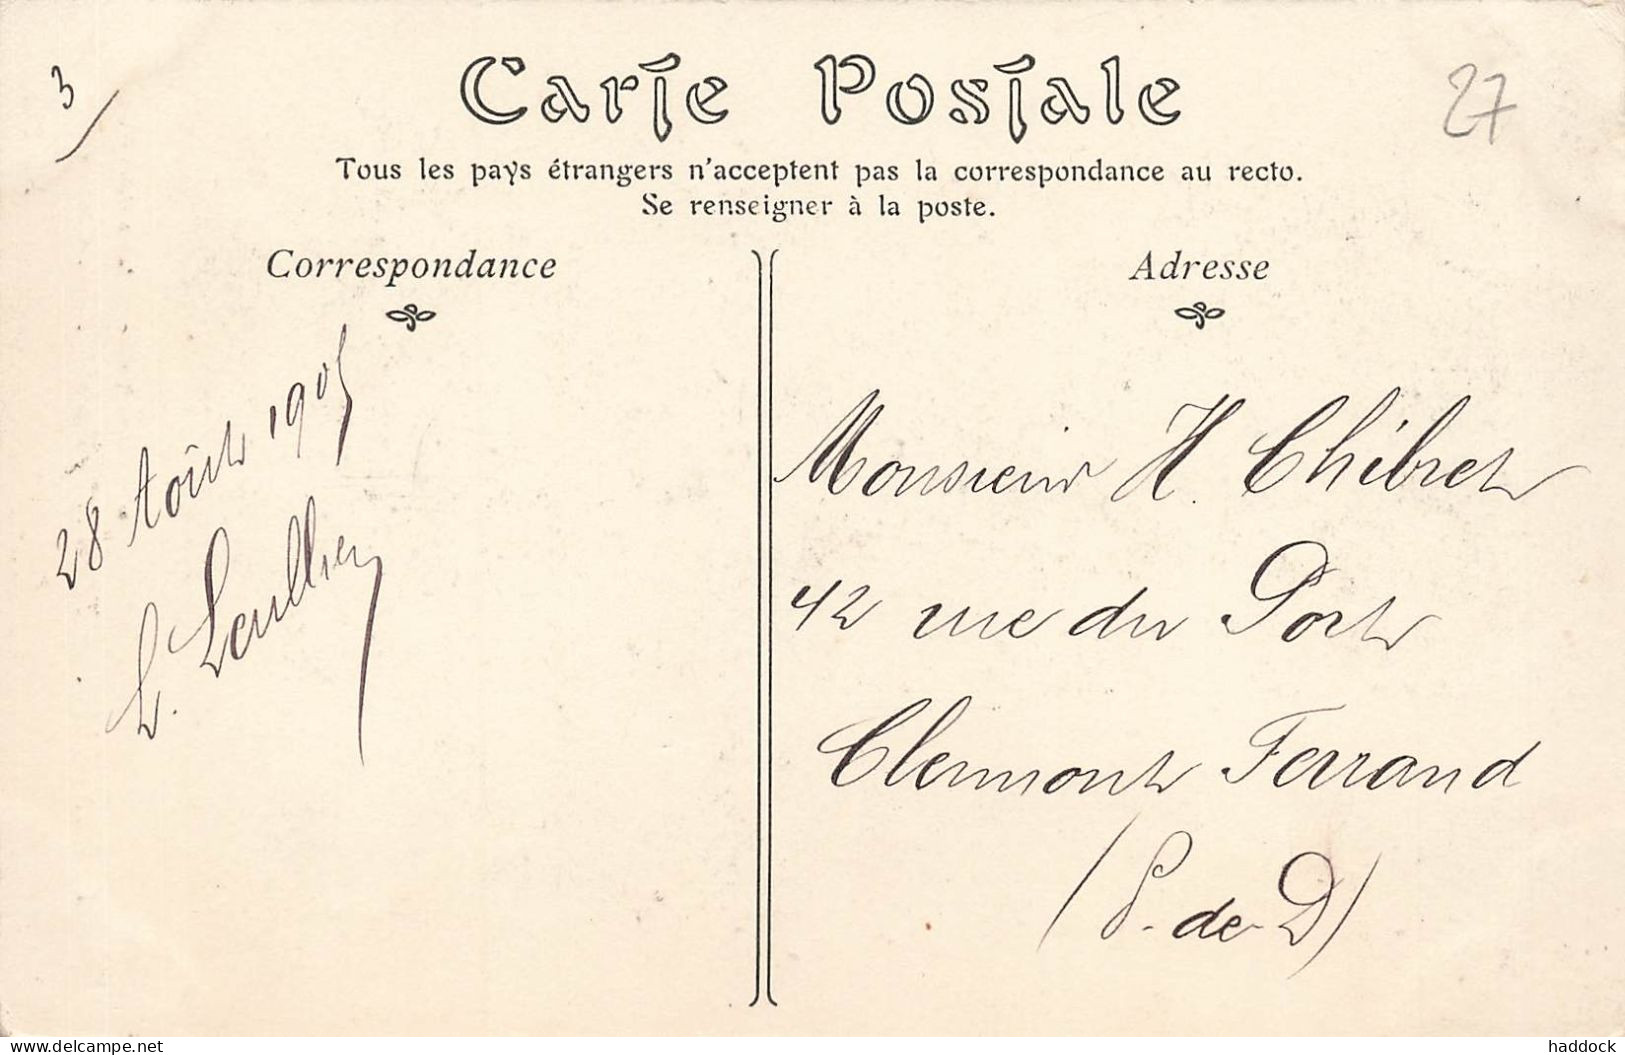 3
Carte Postale
27
Tous les pays étrangers n'acceptent pas la correspondance au recto.
Se renseigner à la poste.
Correspondance
28 Août 1905
L. Leullier
Adresse
Monsieur H. Chibret
42 rue du Port
Clermont Ferrand
(P.-de-D)
www.delcampe.net
haddock